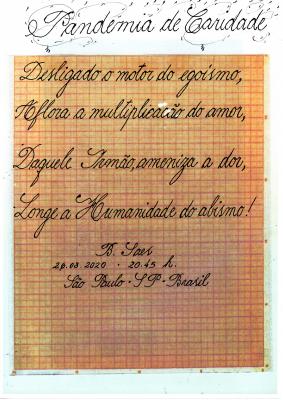 Pandemia de Caridade
Desligado o motor do egoísmo,
Aflora a multiplicação do amor,
Daquele Irmão, ameniza a dor,
Longe a Humanidade do abismo!
B. Saer
26.03.2020 - 20:45 h.
São Paulo - SP - Brasil